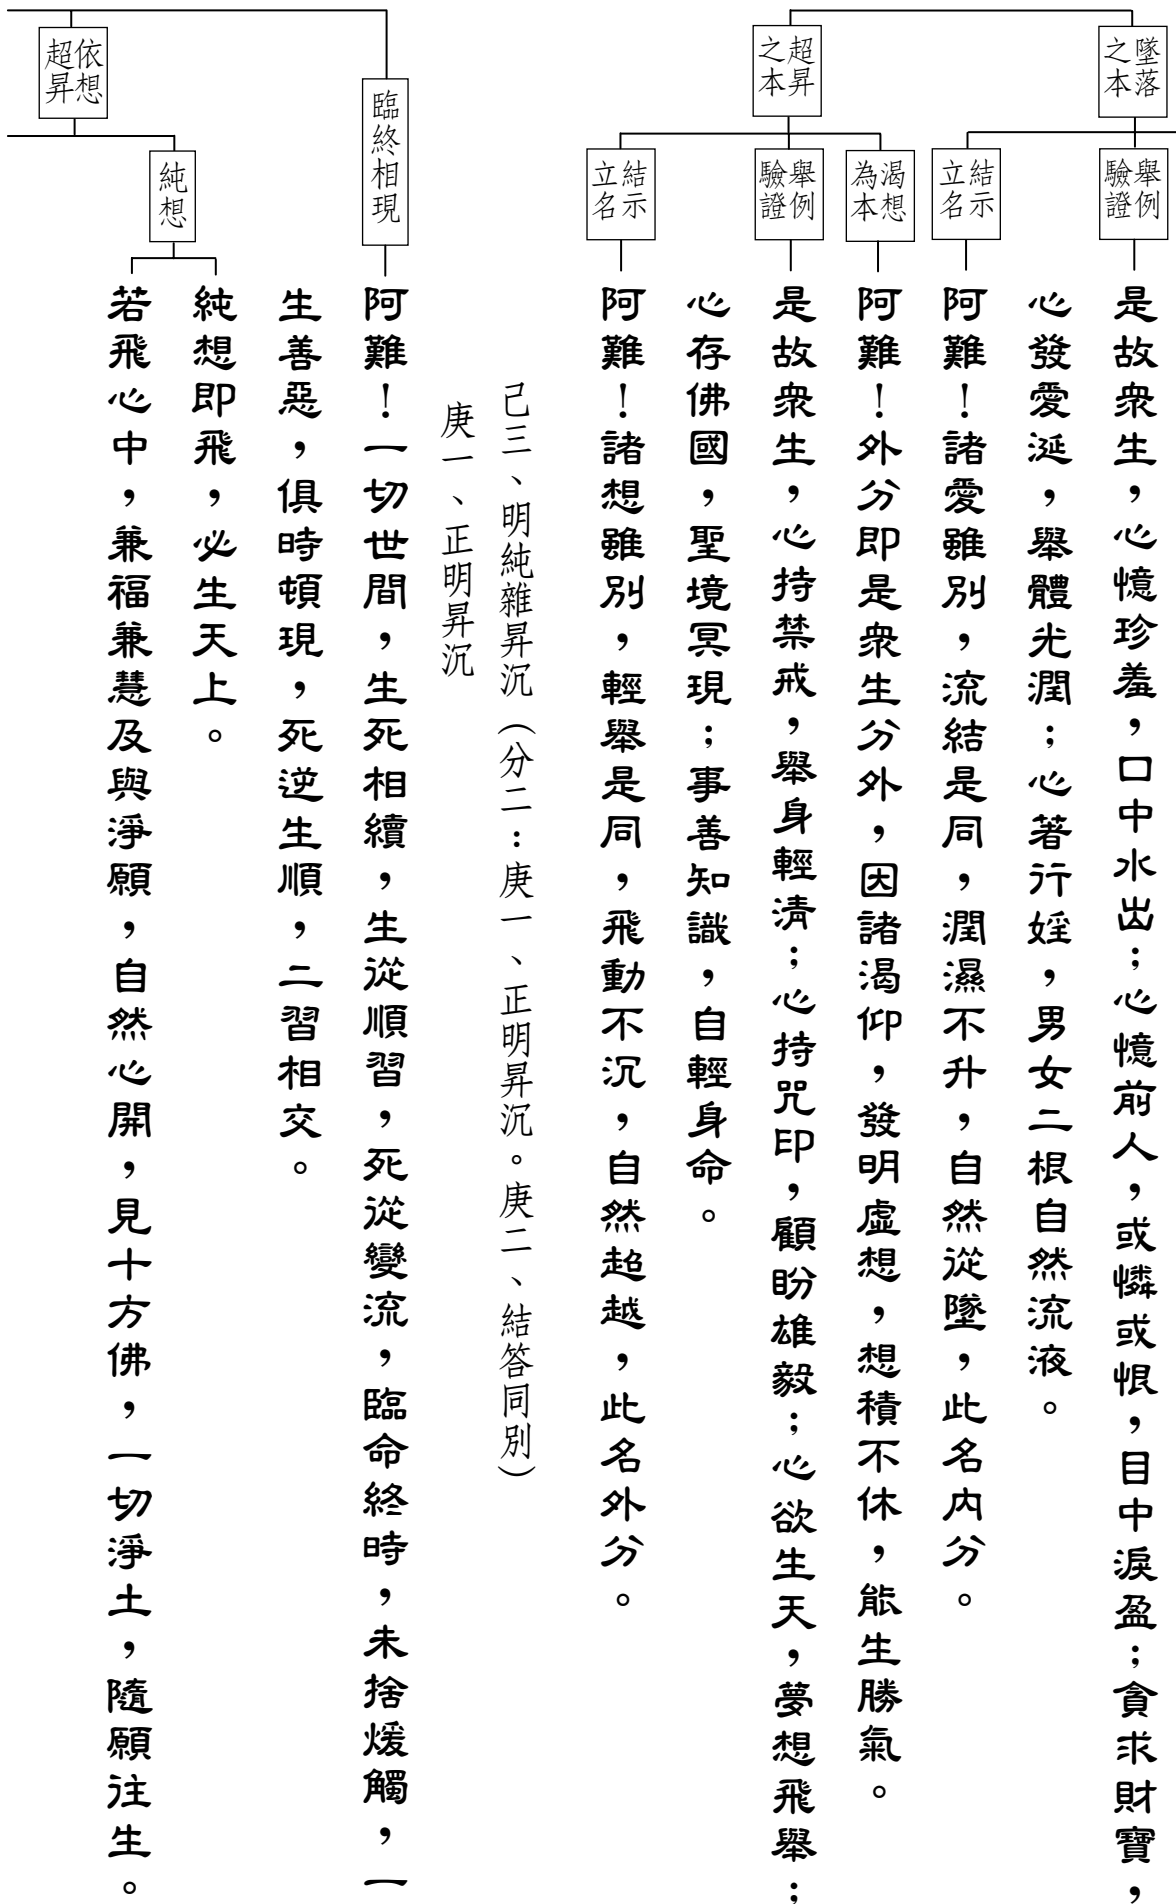 墜落之本
舉例驗證
是故眾生，心憶珍羞，口中水出；心憶前人，或憐或恨，目中淚盈；貪求財寶，
心發愛涎，舉體光潤；心著行婬，男女二根自然流液。
結示立名
阿難！諸愛雖別，流結是同，潤濕不升，自然從墜，此名內分。
超昇之本
渴想為本
阿難！外分即是眾生分外，因諸渴仰，發明虛想，想積不休，能生勝氣。
舉例驗證
是故眾生，心持禁戒，舉身輕清；心持咒印，顧盼雄毅；心欲生天，夢想飛舉；
心存佛國，聖境冥現；事善知識，自輕身命。
結示立名
阿難！諸想雖別，輕舉是同，飛動不沉，自然超越，此名外分。
己三、明純雜昇沉（分二：庚一、正明昇沉。庚二、結答同別）
庚一、正明昇沉
臨終相現
阿難！一切世間，生死相續，生從順習，死從變流，臨命終時，未捨煖觸，一
生善惡，俱時頓現，死逆生順，二習相交。
依想超昇
純想
純想即飛，必生天上。
若飛心中，兼福兼慧及與淨願，自然心開，見十方佛，一切淨土，隨願往生。